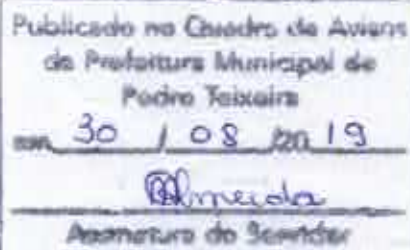 Publicado no Quadro de Avisos
da Prefeitura Municipal de
Pedro Teixeira
em 30 / 08 /20 19
Almeida
Assinatura do Servidor